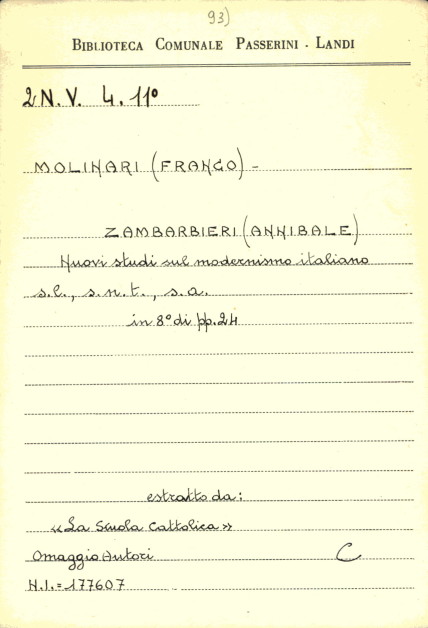 93)
BIBLIOTECA COMUNALE PASSERINI - LANDI
2 N. V. 4. 11°
MOLINARI (FRANCO) -
ZAMBARBIERI (ANNIBALE)
Nuovi studi sul modernismo italiano
s.l., s.n.t., s.a.
in 8° di pp. 24
estratto da:
«La Scuola Cattolica»
Omaggio Autori C
N.I. = 177607